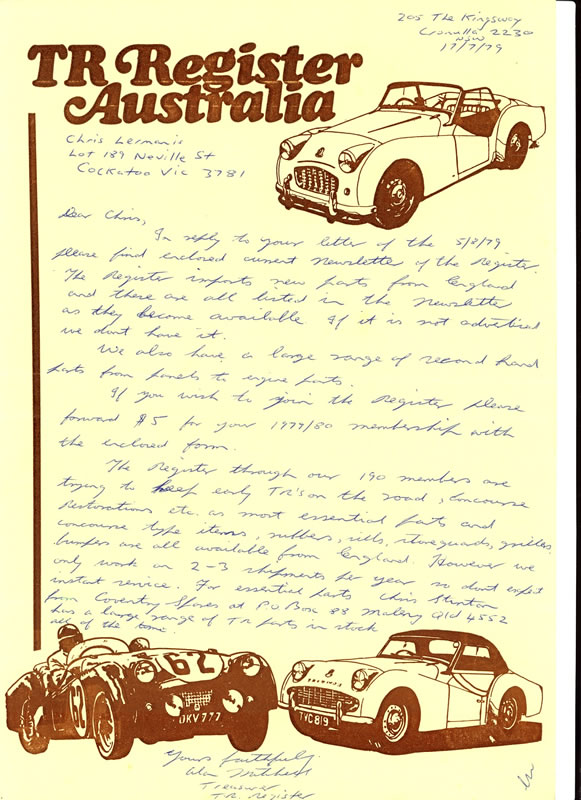 205 The Kingsway
Cronulla 2230
NSW
17/7/79
TR Register
Australia
Chris Lermanis
Lot 189 Neville St
Cockatoo Vic 3781
Dear Chris,
In reply to your letter of the 5/8/79
please find enclosed current Newsletter of the Register.
The Register imports new parts from England
and these are all listed in the Newsletter
as they become available If it is not advertised
we dont have it.
We also have a large range of second hand
parts from panels to engine parts.
If you wish to join the Register please
forward $5 for your 1979/80 membership with
the enclosed form.
The Register through our 190 members are
trying to keep early TR's on the road, Concourse
Restorations etc. as most essential parts and
concourse type items, rubbers, sills, stoneguards, grilles,
bumpers are all available from England. However we
only work on 2-3 shipments per year so dont expect
instant service. For essential parts Chris
from Coventry Spares at PO Box 88 Maleny Qld 4552
has a large range of TR parts in stock
all of the time.
62
62
OKV 777
TRIUMPH
TYC 819
Yours faithfully
Alan
Treasurer
TR Register